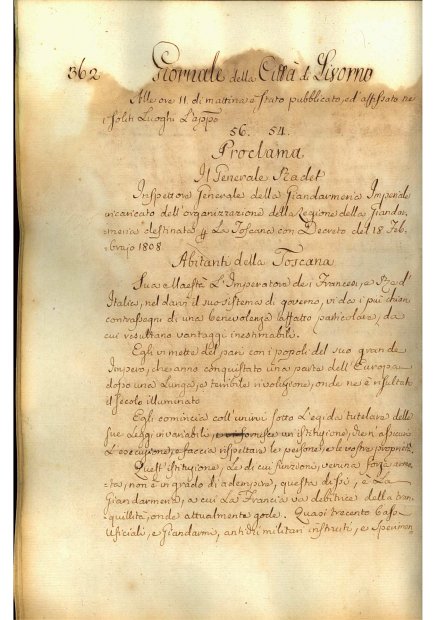 362 Giornale della Città di Livorno
Alle ore 11 di mattina è stato pubblicato, ed affissato ne
soliti Luoghi L'appo
56. 54.
Proclama
Il Generale Radet
Inspettore Generale della Giandarmeria Imperiale
incaricato dell'organizzazione della Legione della Giandar
meria destinata p La Toscana con Decreto del 18 Feb
brajo 1808.
Abitanti della Toscana
Sua Maestà L'Imperatore de Francesi, e Re d'
Italia, nel darvi il suo sistema di governo, vi da i più chiari
contrassegni di una benevolenza affatto particolare, da
cui resultano vantaggi inestimabili.
Egli vi mette del pari con i popoli del suo grande
Impero, che anno conquistato una parte dell'Europa
dopo una Lunga, e terribile rivoluzione, onde ne è risultato
il secolo illuminato
Egli comincia coll'unirvi sotto L'egida tutelare delle
sue Leggi invariabili, un'istituzione, che n'assicuri
L'esecuzione, e faccia rispettare le persone, e le vostre proprietà.
Quest'istituzione, Le di cui funzioni, veruna forza arma
ta, non è in grado di adempire, questa dissi, è La
Giandarmeria, a cui La Francia va debitrice della tran
quillità, onde attualmente gode. Quasi trecento
Uffiziali, e Giandarmi, antichi militari instruiti, e sperimen